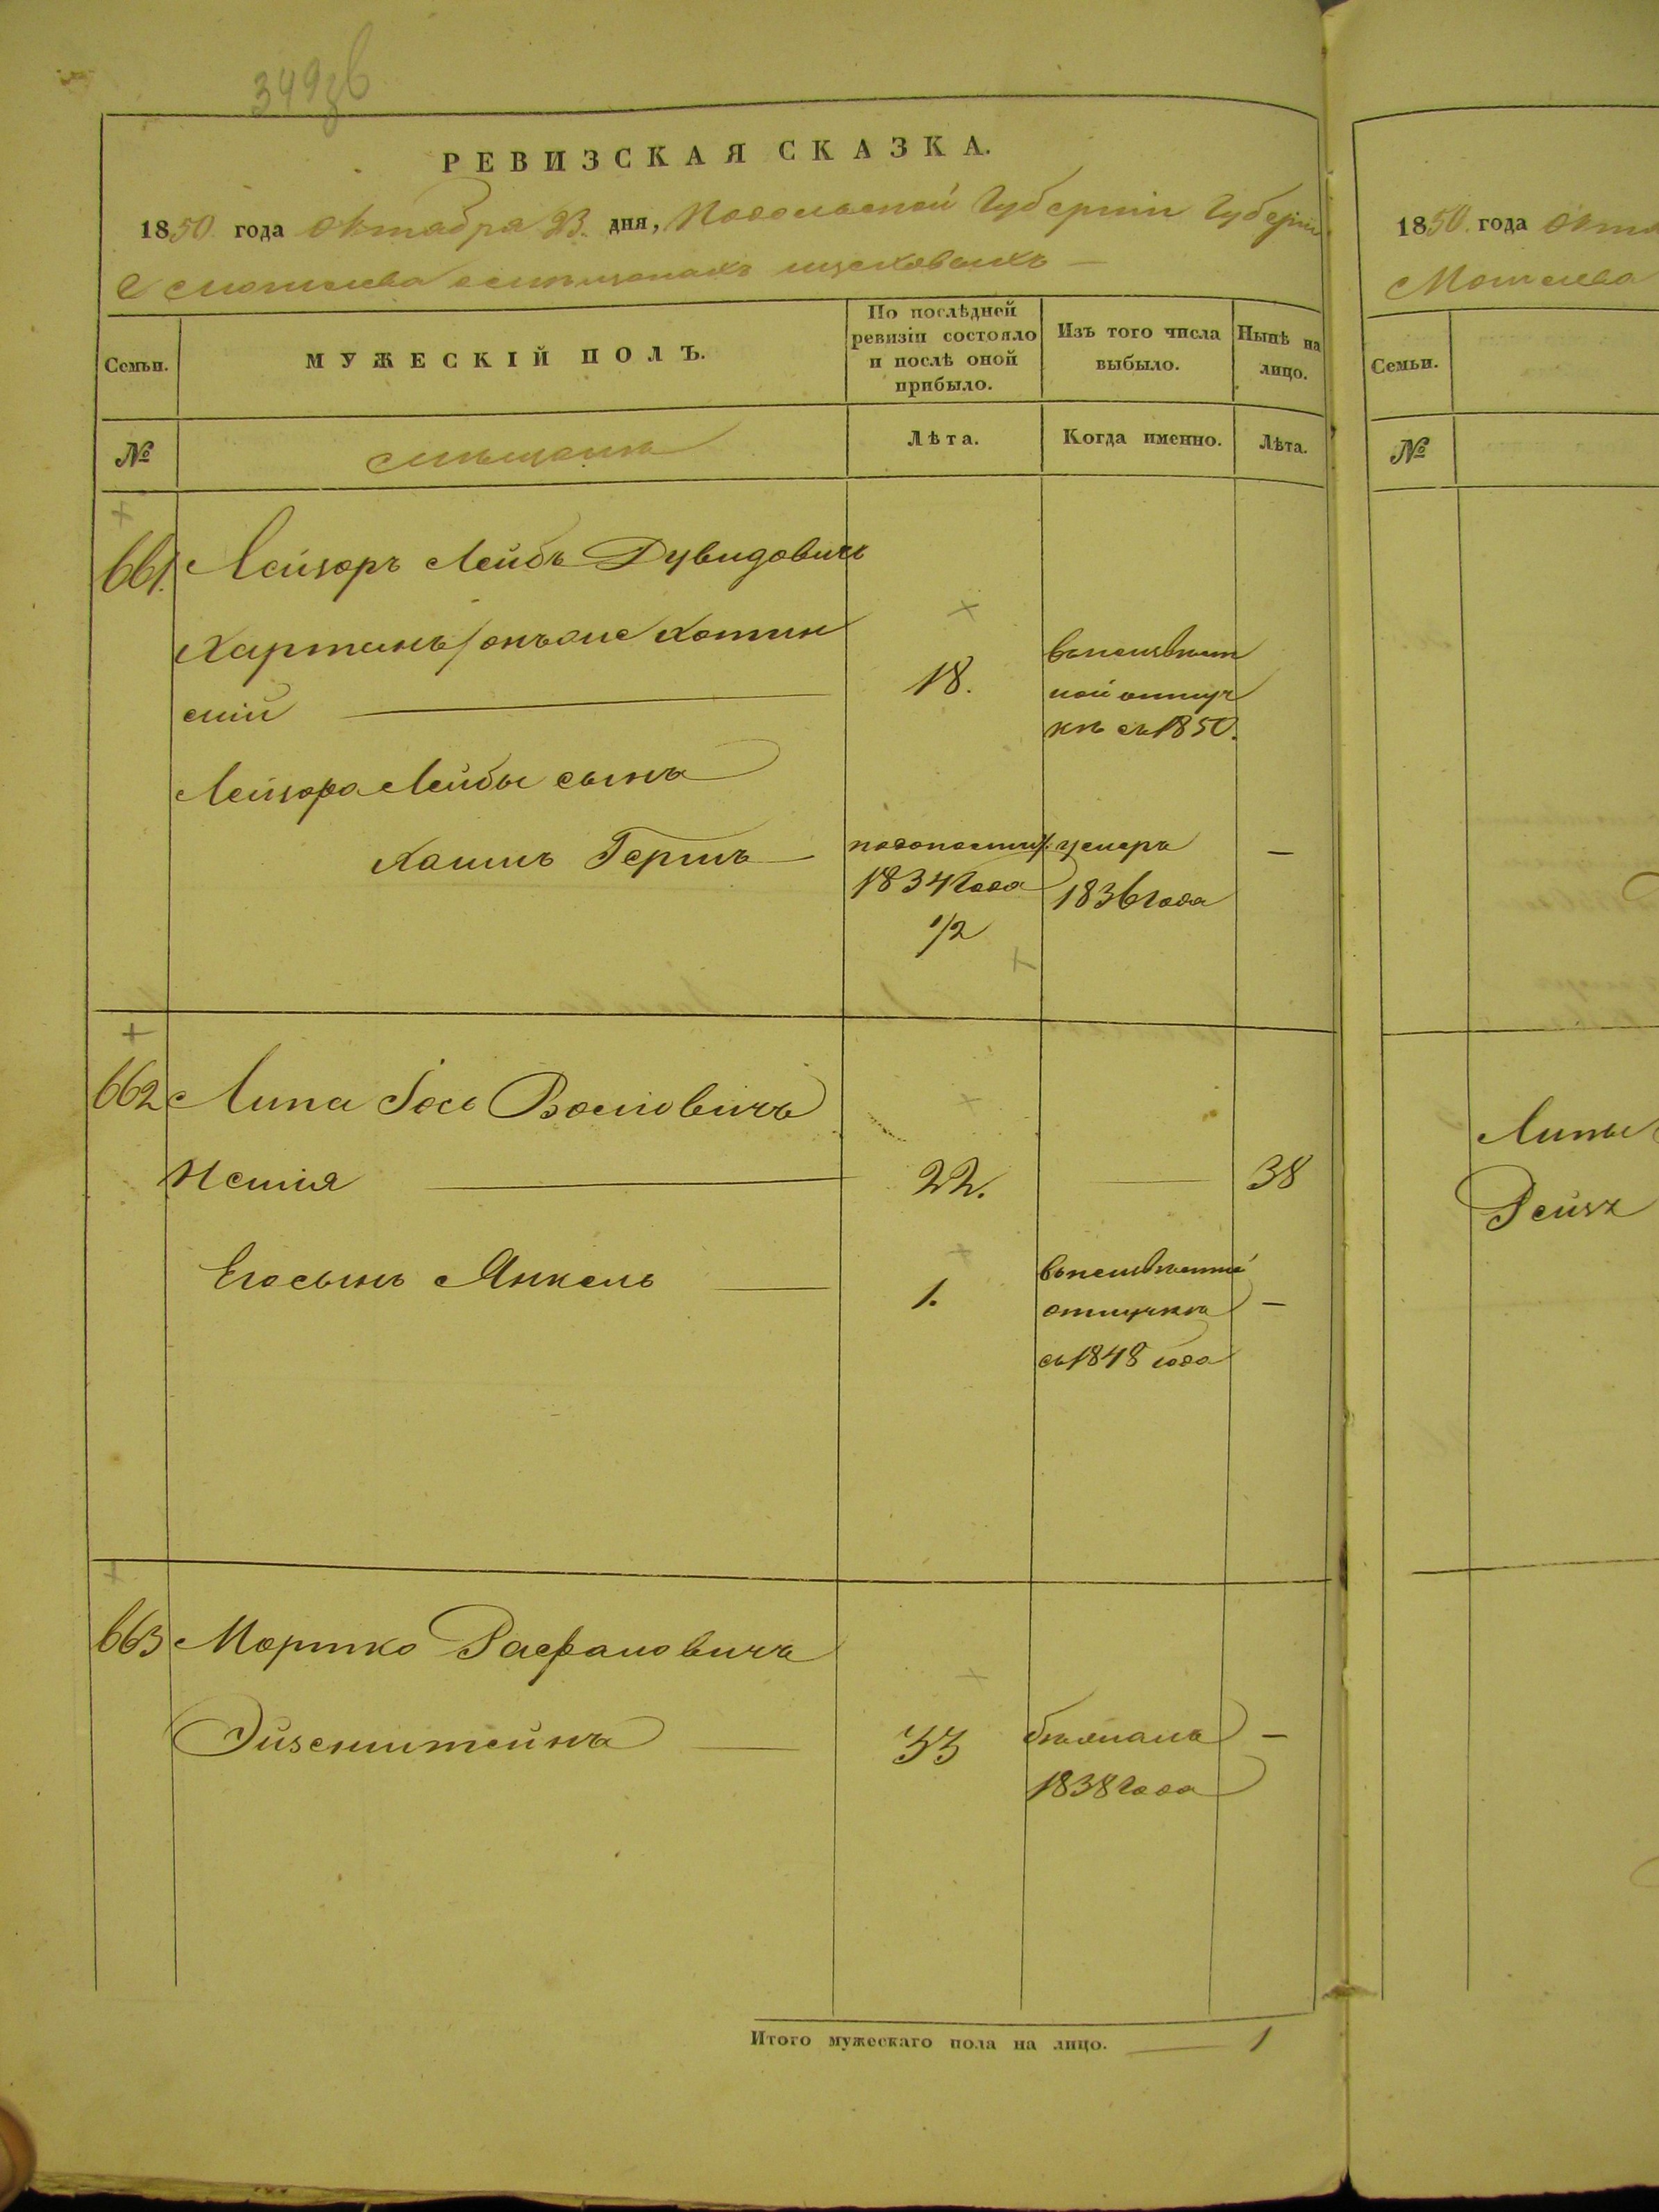 349зв
РЕВИЗСКАЯ СКАЗКА.
1850 года Октября 23. дня, Подольской Губерніи Губерн
Могилева о мѣщанахъ цеховыхъ —
Семьи.
МУЖЕСКІЙ ПОЛЪ.
По послѣдней ревизіи состояло и послѣ оной прибыло.
Изъ того числа выбыло.
Нынѣ на лицо.
№
мѣщане
Лѣта.
Когда именно.
Лѣта.
661. Лейзоръ Лейбъ Дувидовичь
Хартанъ / онъ же Хотин
скій
18.
въ неизвѣст
ной отлуч
кѣ съ 1850.
Лейзора Лейбы сынъ
Хаимъ Гершъ —
1834 года
1/2
умеръ
1836 года
—
662 Липа Іось Вольковичъ
22.
38
Его сынъ Янкель —
1.
въ неизвѣстной
отлучкѣ
съ 1848 года
—
663 Мортко Рафаловичъ
Эйзенштейнъ —
33
бѣжалъ
1838 года
—
Итого мужескаго пола на лицо. — 1
1850. года Октя
Могилева
Семьи.
№
Липы
Рейзя